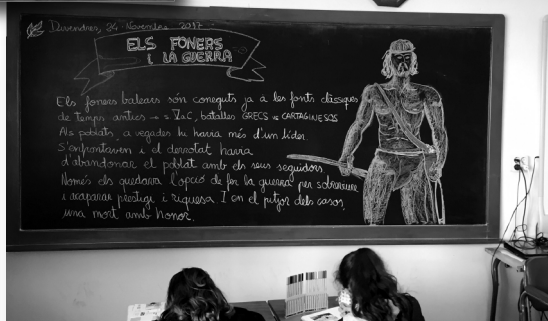 Divendres, 24 Novembre 2017
ELS FONERS
I LA GUERRA
Els foners balears són coneguts ja a les fonts clàssiques
de temps antics → s V aC, batalles GRECS vs CARTAGINESOS
Als poblats, a vegades hi havia més d'un líder.
S'enfrontaven i el derrotat havia
d'abandonar el poblat amb els seus seguidors
Només els quedava l'opció de fer la guerra per sobreviure
i acaparar prestigi i riquesa I en el pitjor dels casos,
una mort amb honor.